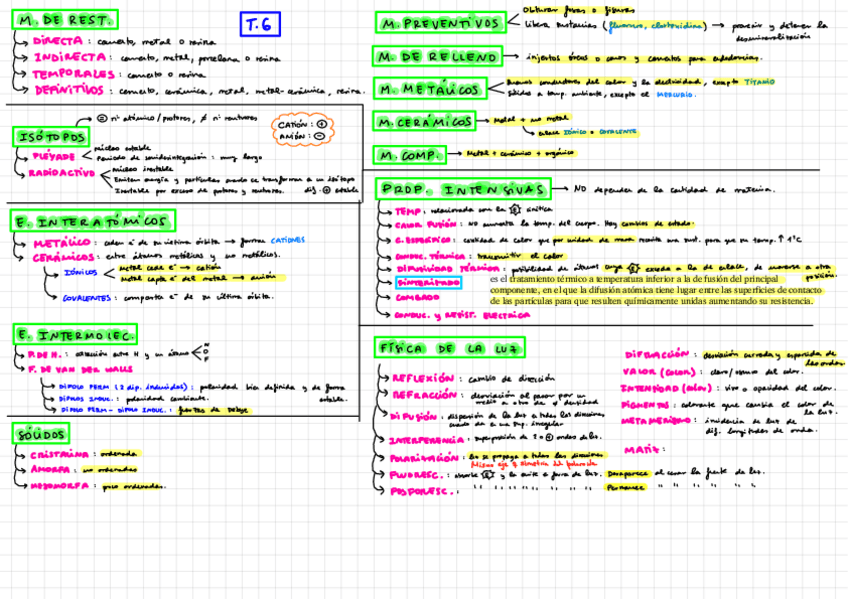 M. DE REST.
T.6
DIRECTA : cemento, metal o resina
INDIRECTA : cemento, metal, porcelana o resina
TEMPORALES : cemento o resina
DEFINITIVOS : cemento, cerámica, metal, metal-cerámica, resina.
ISÓTOPOS
= nº atómico/protones, ≠ nº neutrones
CATIÓN : +
ANIÓN : -
PLÉYADE
Núcleo estable
Periodo de semidesintegración : muy largo
RADIOACTIVO
núcleo inestable
Emiten energía y partículas cuando se transforman a un isótopo
Inestable por exceso de protones y neutrones. estable
E. INTERATÓMICOS
METÁLICO : ceden e⁻ de su última órbita → forma CATIONES
CERÁMICOS : entre átomos metálicos y no metálicos.
IÓNICOS
Metal cede e⁻ → catión
Metal capta e⁻ del metal → anión
COVALENTES : comparten e⁻ de su última órbita.
E. INTERMOLEC.
P. DE H. : atracción entre H y un átomo N O F
F. DE VAN DER WALLS
DIPOLO PERM (2 dip. inducidos) : polaridad bien definida y de forma estable.
DIPOLOS INDUC. : polaridad cambiante.
DIPOLO PERM - DIPOLO INDUC. : fuerzas de Debye
SÓLIDOS
CRISTALINA : ordenada
AMORFA : no ordenadas
MESOMORFA : poco ordenadas.
M. PREVENTIVOS
Obturar fosas o fisuras
Libera sustancias (fluoruro, clorhexidina) → prevenir y detener la desmineralización
M. DE RELLENO → injertos óseos o conos y cementos para endodoncias.
M. METÁLICOS
Buenos conductores del calor y la electricidad, excepto TITANIO
Sólidos a temp. ambiente, excepto el MERCURIO.
M. CERÁMICOS → Metal + no metal
enlace IÓNICO o COVALENTE
M. COMP. → Metal + cerámico + orgánico
PROP. INTENSIVAS → NO dependen de la cantidad de materia.
TEMP. relacionada con la E cinética
CALOR FUSIÓN : NO aumenta la temp. del cuerpo. Hay cambios de estado.
C. ESPECÍFICO : cantidad de calor que por unidad de masa necesita una sust. para que su temp. ↑ 1°C
CONDUC. TÉRMICA : transmitir el calor
DIFUSIVIDAD TÉRMICA : posibilidad de átomos cuya E exceda a la de enlace, de moverse a otra posición.
SINTERIZADO
es el tratamiento térmico a temperatura inferior a la de fusión del principal
componente, en el que la difusión atómica tiene lugar entre las superficies de contacto
de las partículas para que resulten químicamente unidas aumentando su resistencia.
COMBADO
CONDUC. Y RESIST. ELÉCTRICA
FÍSICA DE LA LUZ
REFLEXIÓN : cambio de dirección
REFRACCIÓN : desviación al pasar por un medio a otro de ≠ densidad
DIFUSIÓN : dispersión de la luz a todas las direcciones cuando da a una sup. irregular
INTERFERENCIA : superposición de 2 o + ondas de luz.
POLARIZACIÓN : luz se propaga a todas las direcciones
FLUORESC. : absorbe E y la emite a forma de luz. Desaparece al cesar la fuente de luz.
FOSFORESC. : " " " " " " " Permanece " " " " "
DIFRACCIÓN : desviación curvada y esparcida de las ondas
VALOR (COLOR) : claro/oscuro del color.
INTENSIDAD (color) : vivo o opacidad del color.
PIGMENTOS : colorante que cambia el color de la luz.
METAMERISMO : incidencia de luz de dif. longitudes de onda.
MATIZ :